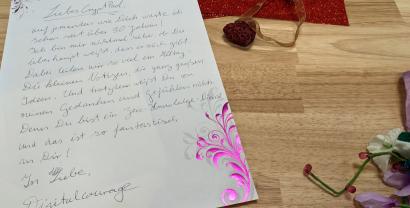 Liebes CryptPad,
auf jemanden wie Dich warte ich
schon seit über 30 Jahren!
Ich bin mir manchmal sicher, ob Du
überhaupt weißt, dass es mich gibt.
Dabei teilen wir so viel im Alltag.
Die kleinen Notizen, die ganz großen
Ideen. Und trotzdem weißt Du von
meinen Gedanken und Gefühlen nichts.
Denn Du bist ein Zero Knowledge
und das ist so fantastisch
an Dir!
In Liebe,
Digitalcourage